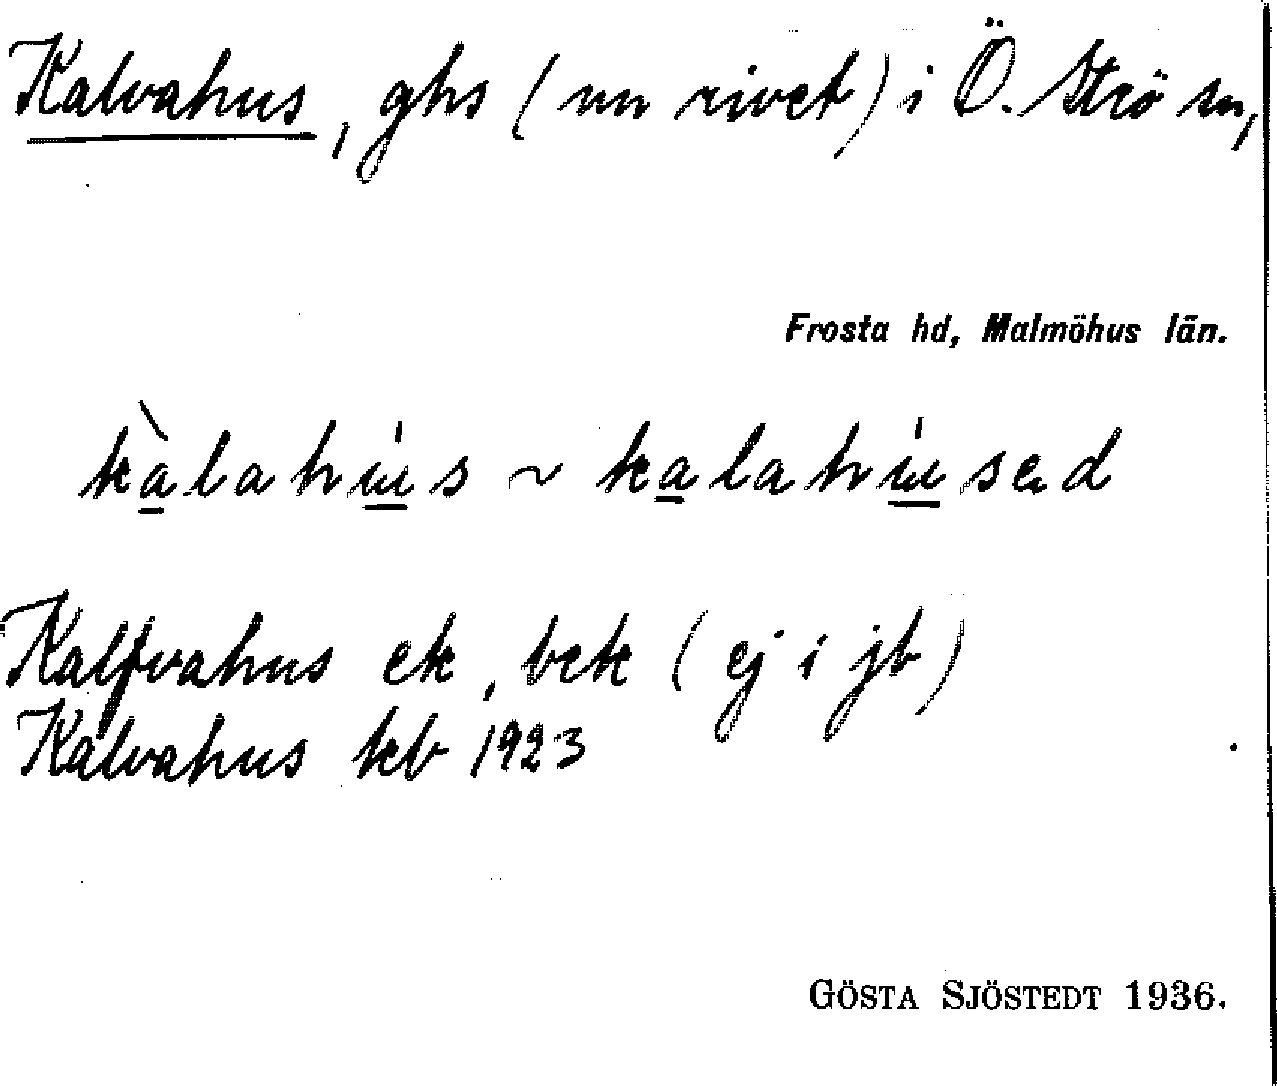 Kalvahus, ghs (nu rivet) i Ö. Strö sn,
Frosta hd, Malmöhus län.
kàlahúus ~ kalahúused
Kalfvahus ek, bek (ej i jb)
Kalvahus kb 1923
GÖSTA SJÖSTEDT 1936.